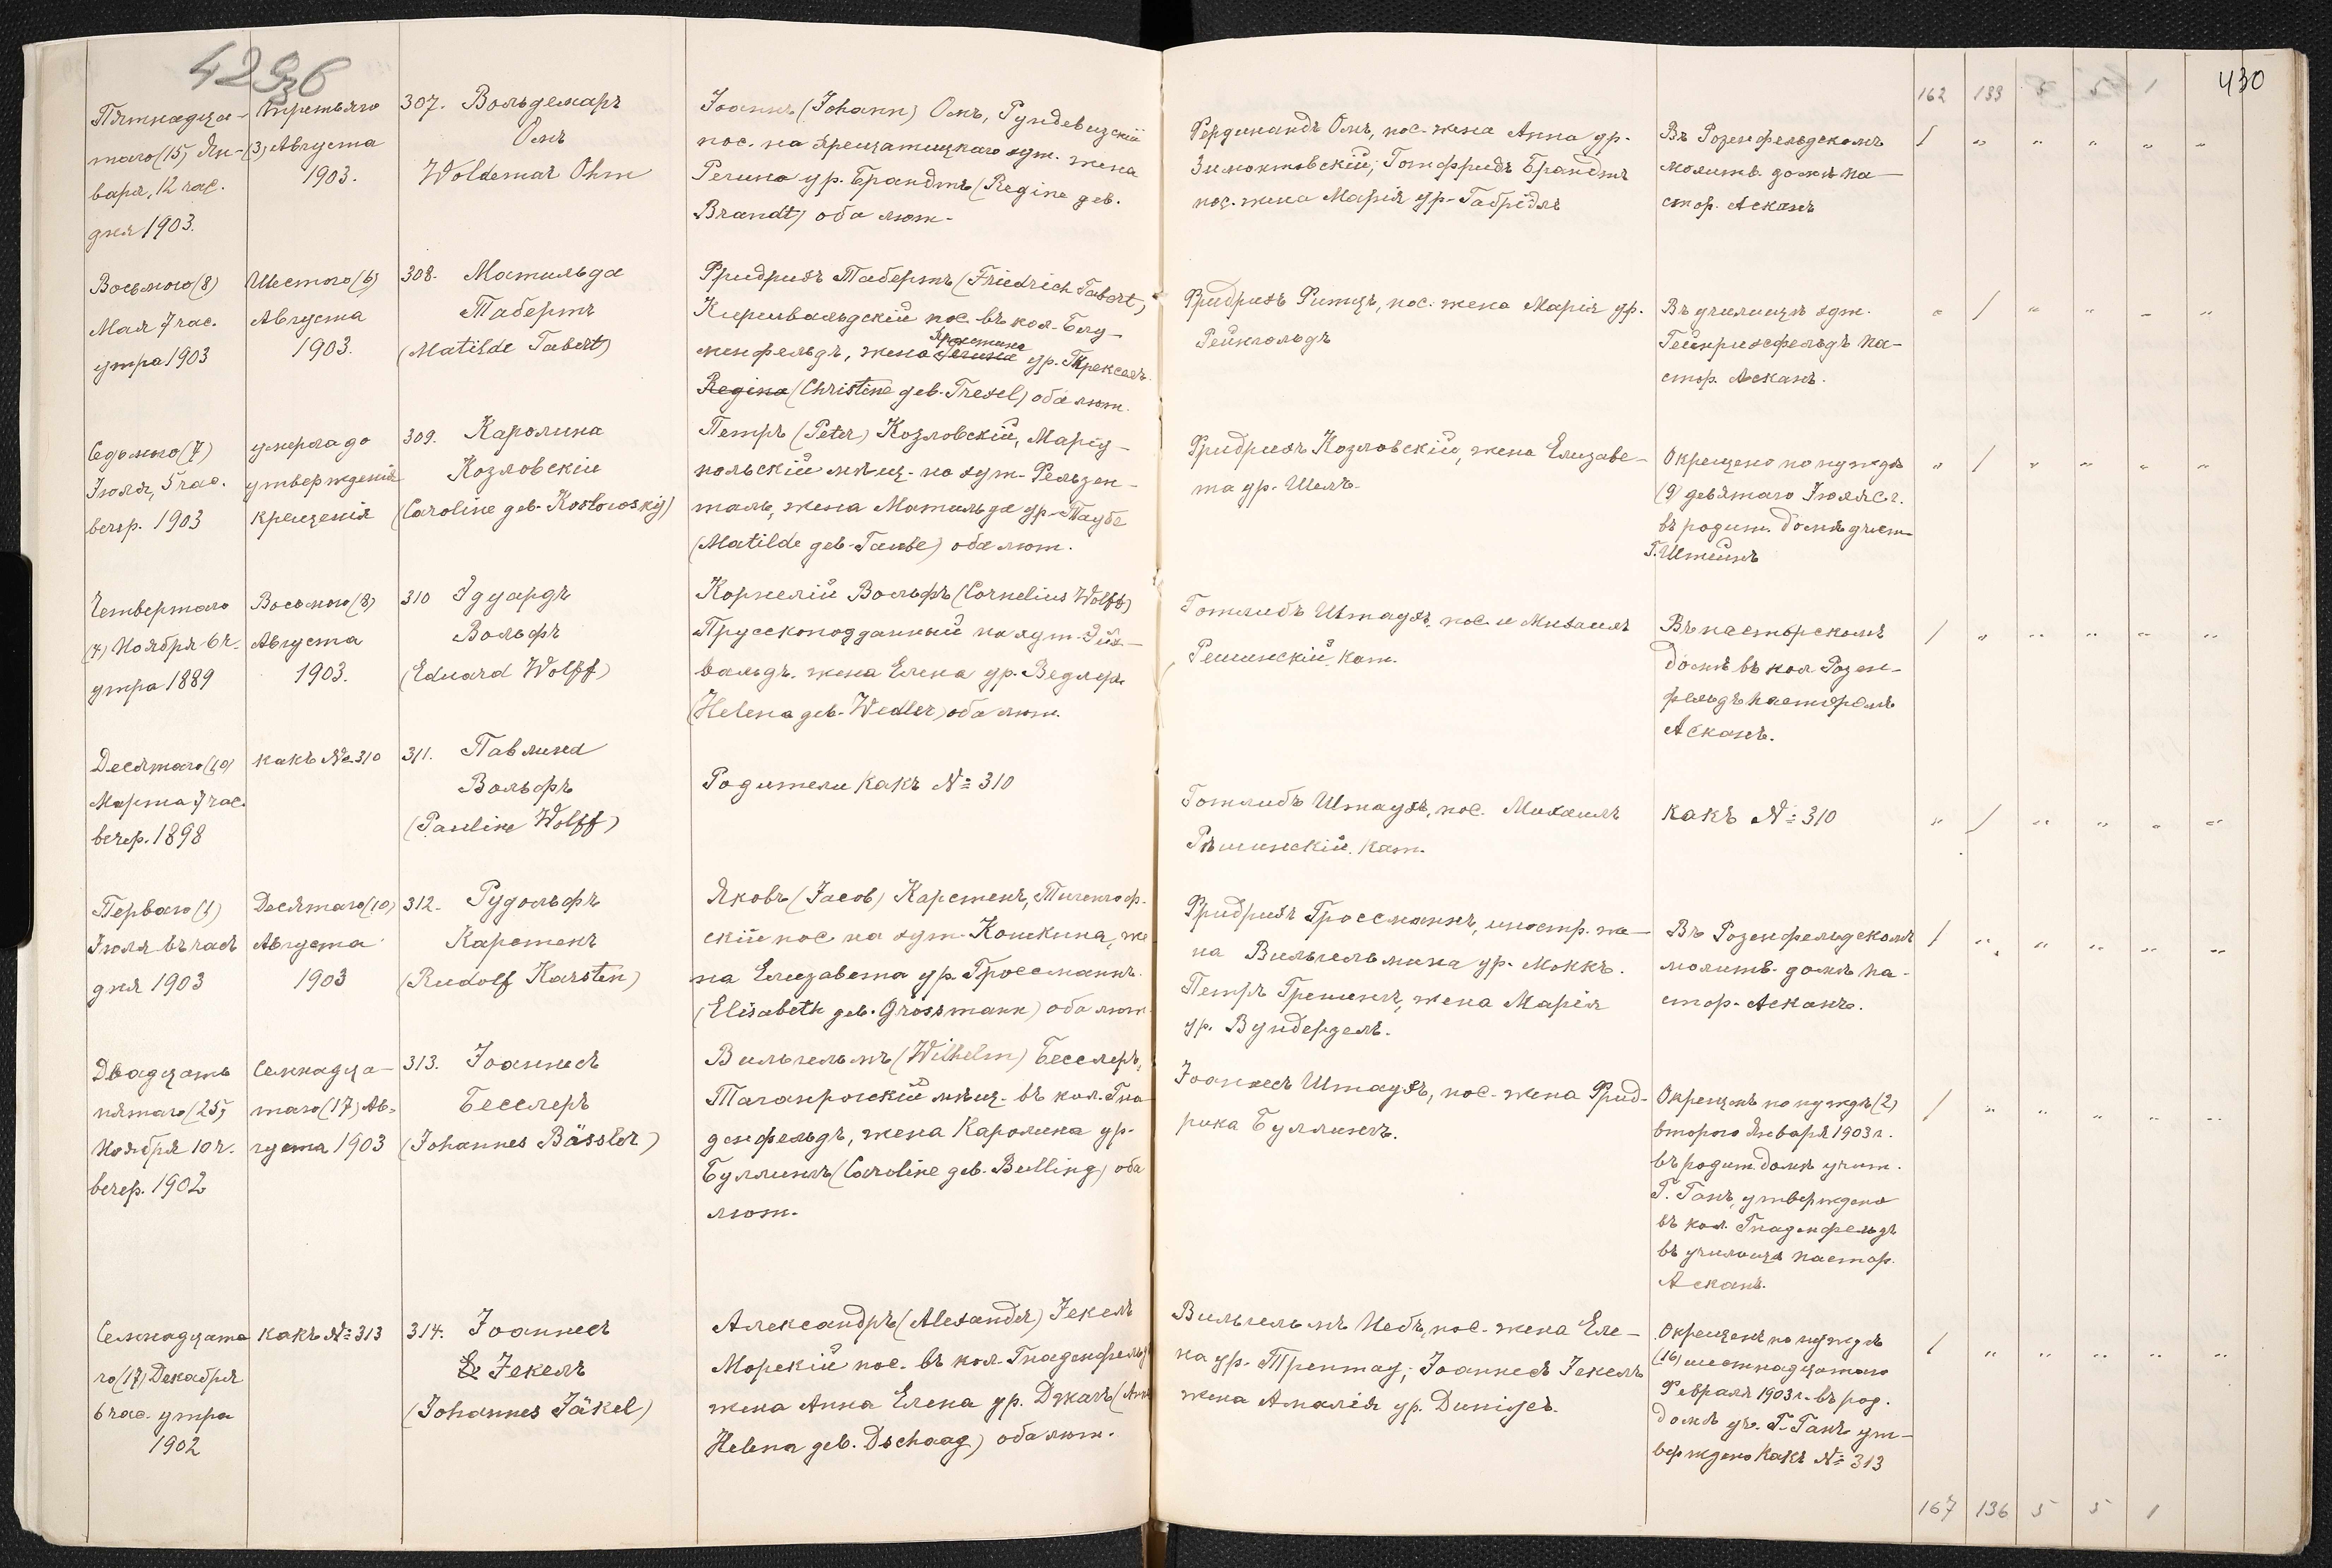 429об
430
162 133 5 5 1
Пятнадца-
таго (15) Ян-
варя, 12 час.
дня 1903.
Третьяго
(3) Августа
1903.
307. Вольдемаръ
Омъ
Woldemar Ohm
Іоаннъ (Johann) Омъ,
пос. на хут. жена
Регина ур. Брандтъ (Regine geb.
Brandt) оба лют.
Фердинандъ Омъ, пос. жена Анна ур.
Готфридъ Брандтъ
пос. жена Марія ур.
Въ Розенфельдскомъ
молитв. домѣ па-
стор. Асканъ
1 „ „ „ „ „
Восьмого (8)
Мая 7 час.
утра 1903
Шестого (6)
Августа
1903.
308. Матильда
Табертъ
(Matilde Tabert)
Фридрихъ Табертъ (Friedrich Tabert),
Киршвальдскій пос. въ кол. Блу-
менфельдъ, жена Христина Регина ур. Трексель
Regina (Christine geb. Trexel) оба лют.
Фридрихъ Ритцъ, пос. жена Марія ур.
Рейнгольдъ
Въ училищѣ хут.
Гейнрихсфельдъ па-
стор. Асканъ.
„ 1 „ „ „ „
Седьмого (7)
Іюля, 5 час.
вечер. 1903
умерла до
утвержденія
крещенія
309. Каролина
Козловскій
(Caroline geb. Koslowsky)
Петръ (Peter) Козловскій, Маріу-
польскій мѣщ. на хут. Фельзен-
таль, жена Матильда ур. Таубе
(Matilde geb. Taube) оба лют.
Фридрихъ Козловскій, жена Елизаве-
та ур. Шель.
Окрещено по нуждѣ
(9) девятаго Іюля с.г.
въ родит. домѣ учит.
Г. Штейнъ
„ 1 „ „ „ „
Четвертаго
(4) Ноября 6 ч.
утра 1889
Восьмого (8)
Августа
1903.
310 Эдуардъ
Вольфъ
(Eduard Wolff)
Корнелій Вольфъ (Cornelius Wolff)
Прусскоподданный на хут. Эйх-
вальдъ. жена Елена ур. Ведлеръ
(Helena geb. Wedler) оба лют.
Готлибъ Штаухъ, пос. и Михаилъ
Решинскій. кат.
Въ пасторскомъ
домѣ въ кол Розен-
фельдъ пасторомъ
Асканъ.
1 „ „ „ „ „
Десятаго (10)
Марта 7 час.
вечер. 1898
какъ № 310
311. Павлина
Вольфъ
(Pauline Wolff)
Родители какъ № 310
Готлибъ Штаухъ, пос. Михаилъ
Рѣшинскій. кат.
какъ № 310
„ 1 „ „ „ „
Перваго (1)
Іюля въ часъ
дня 1903
Десятаго (10)
Августа
1903
312. Рудольфъ
Карстенъ
(Rudolf Karsten)
Яковъ (Jacob) Карстенъ, Тигенгоф-
скій пос. на хут. Кошкина, же-
на Елизавета ур. Гроссманнъ.
(Elisabeth geb. Grossmann) оба лют.
Фридрихъ Гроссманнъ, иностр. же-
на Вильгельмина ур. Моккъ.
Петръ Гренингъ, жена Марія
ур. Вундерзель.
Въ Розенфельдскомъ
молитв. домѣ па-
стор. Асканъ.
1 „ „ „ „ „
Двадцать
пятаго (25)
Ноября 10 ч.
вечер. 1902
Семнадца-
таго (17) Ав-
густа 1903
313. Іоаннесъ
Бесслеръ
(Johannes Bässler)
Вильгельмъ (Wilhelm) Бесслеръ,
Таганрогскій мѣщ. въ кол. Гна-
денфельдъ, жена Каролина ур.
Буллингъ (Caroline geb. Bulling) оба
лют.
Іоаннесъ Штаухъ, пос. жена Фрид-
рика Буллингъ.
Окрещенъ по нуждѣ (2)
второго Января 1903 г.
въ родит. домѣ учит.
Г. Ганъ, утверждено
въ кол. Гнаденфельдъ
въ училищѣ пастор.
Асканъ.
1 „ „ „ „ „
Семнадцата
го (17) Декабря
6 час. утра
1902
какъ № 313
314. Іоаннесъ
Іекель
(Johannes Jäkel)
Александръ (Alexander) Іекель
Морскій пос. въ кол. Гнаденфельдъ
жена Анна Елена ур. Джагъ (Anna
Helena geb. Dschaag) оба лют.
Вильгельмъ Небъ, пос. жена Еле-
на ур. Трептау; Іоаннесъ Іекель
жена Амалія ур.
Окрещенъ по нуждѣ
(16) шестнадцатаго
Февраля 1903 г. въ род.
домѣ уч. Г. Ганъ ут-
верждено какъ № 313
1 „ „ „ „ „
167 136 5 5 1